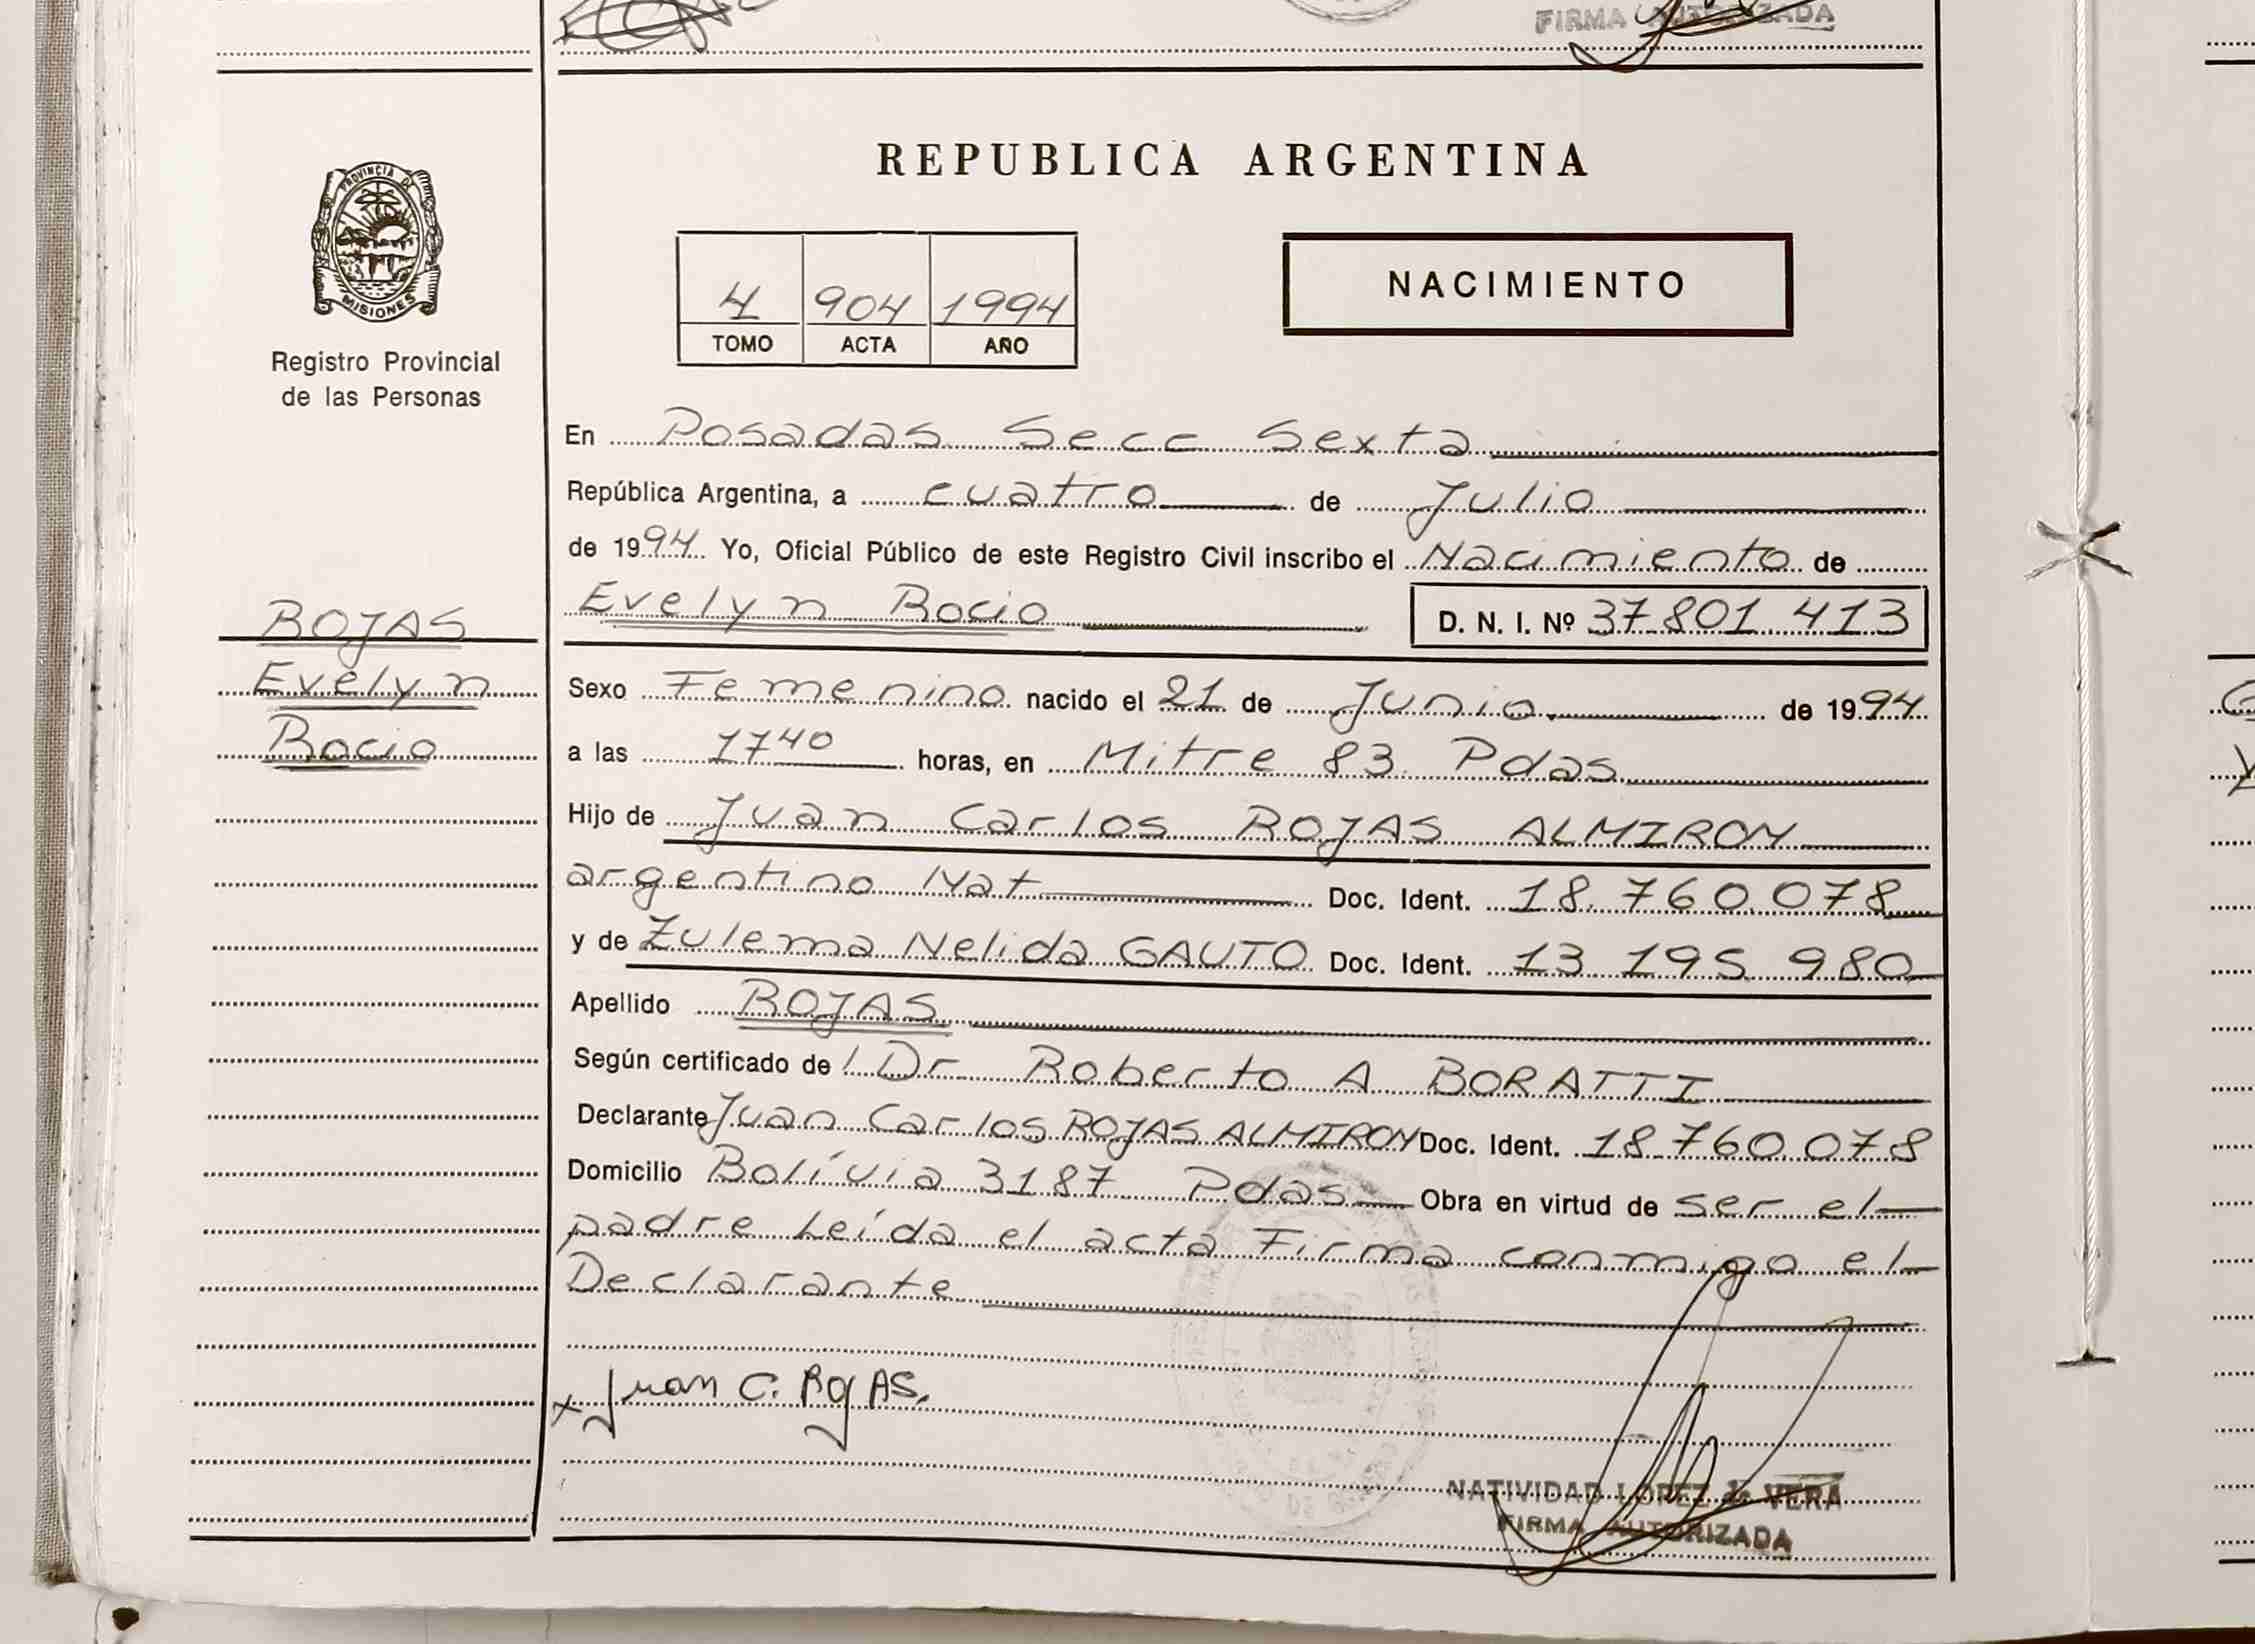 FIRMA AUTORIZADA
PROVINCIA DE
MISIONES
Registro Provincial
de las Personas
ROJAS
Evelyn
Rocio
REPUBLICA ARGENTINA
4 904 1994
TOMO ACTA AÑO
NACIMIENTO
En Posadas Secc Sexta
República Argentina, a cuatro de Julio
de 1994 Yo, Oficial Público de este Registro Civil inscribo el Nacimiento de
Evelyn Rocio D. N. I. Nº 37.801.413
Sexo Femenino nacido el 21 de Junio de 1994
a las 17 40 horas, en Mitre 83 Pdas
Hijo de Juan Carlos ROJAS ALMIRON
argentino Nat Doc. Ident. 18.760.078
y de Zulema Nelida GAUTO Doc. Ident. 13 195 980
Apellido ROJAS
Según certificado de l Dr Roberto A BORATTI
Declarante Juan Carlos ROJAS ALMIRON Doc. Ident. 18.760.078
Domicilio Bolívia 3187 Pdas Obra en virtud de ser el
padre Leída el acta Firma conmigo el
Declarante
x Juan C. ROJAS.
NATIVIDAD LOPEZ de VERA
FIRMA AUTORIZADA